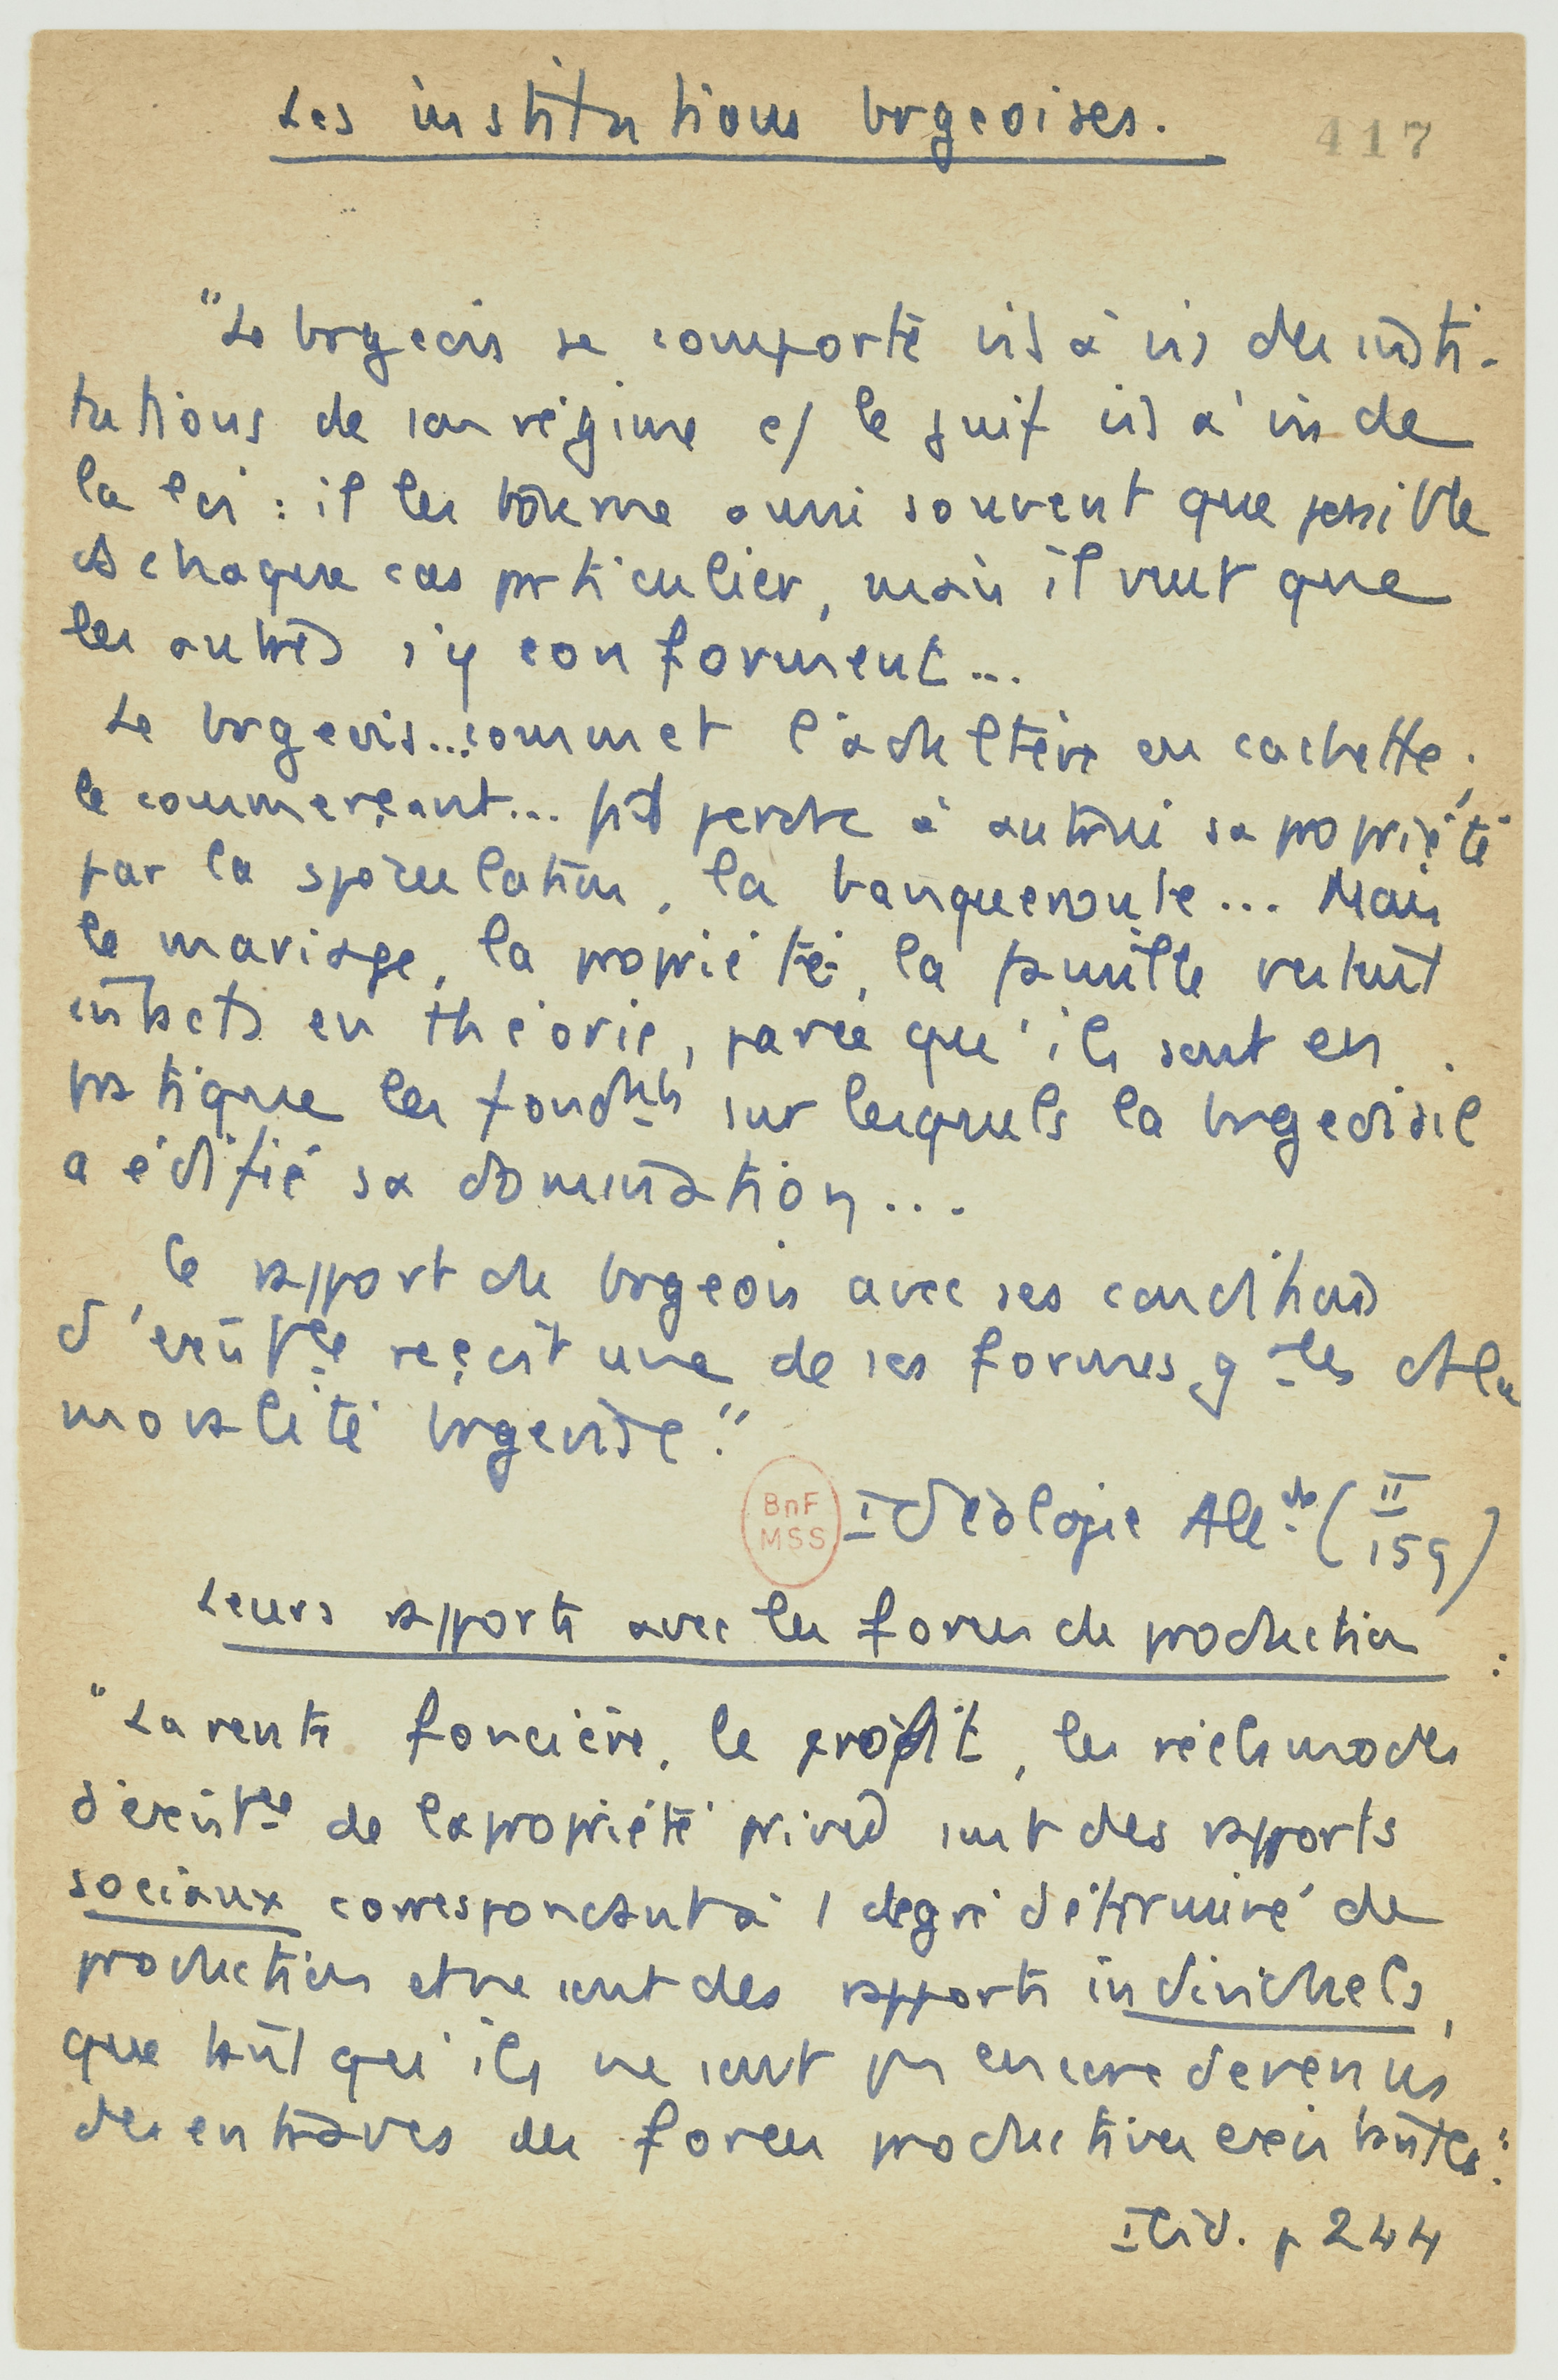 Les institutions brgeoises.
417
"Le brgeois se comporte vis à vis des insti-
tutions de son régime c/ le juif vis à vis de
la loi : il les tourne aussi souvent que possible
ds chaque cas prticulier, mais il veut que
les autres s'y conforment...
Le brgeois... commet l'adultère en cachette ;
le commerçant... fait perdre à autrui sa propriété
par la spéculation, la banqueroute... Mais
le mariage, la propriété, la famille restent
intacts en théorie, parce qu'ils sont en
pratique les fondmts sur lesquels la brgeoisie
a édifié sa domination...
le rapport du brgeois avec ses conditions
d'existce reçoit une de ses formes gles ds la
moralité brgeoise."
BnF
MSS
Idéologie Allde (II
159)
Leurs rapports avec les forces de production :
"La rente foncière, le profit, les réels modes
d'existce de la propriété privée sont des rapports
sociaux correspondant à 1 degré déterminé de
production et ne sont des rapports individuels,
que tant qu'ils ne sont pas encore devenus
des entraves des forces productives existantes."
Ibid. p 244